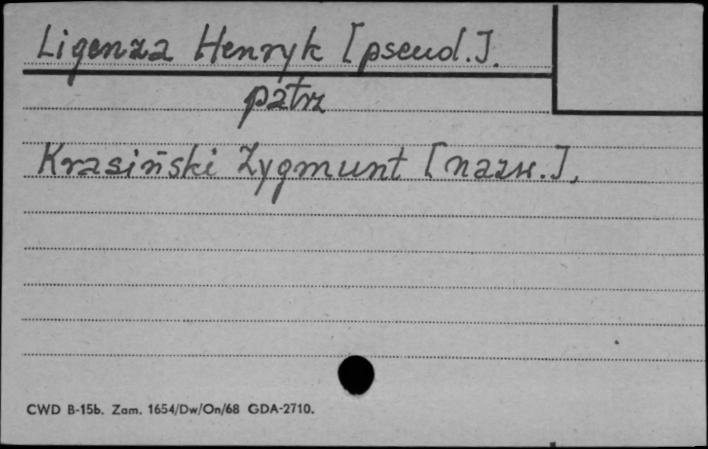 Ligenza Henryk [pseud.].
patrz
Krasiński Zygmunt [nazw.].
CWD B-15b. Zam. 1654/Dw/On/68 GDA-2710.